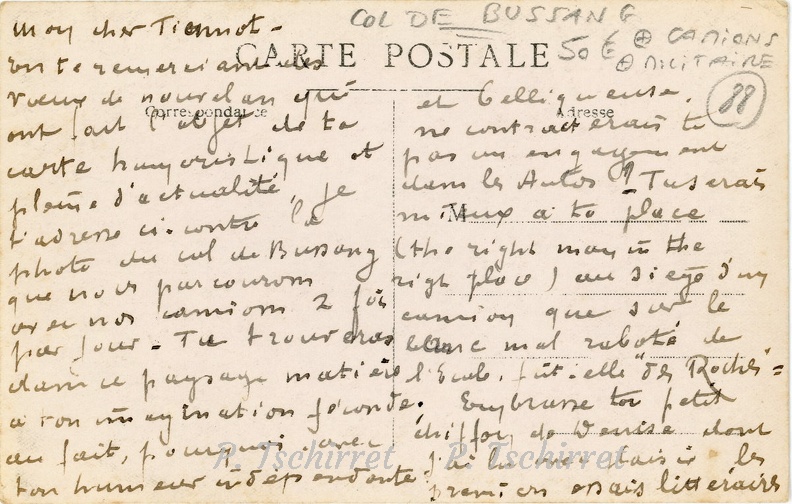 COL DE BUSSANG
50 € ⊕ CAMIONS
⊕ MILITAIRE
88
CARTE POSTALE
Correspondance
Adresse
M
Mon cher Tiennot -
En te remerciant des
vœux de nouvel an qui
ont fait l'objet de ta
carte humoristique et
pleine d'actualité, je
t'adresse ci-contre la
photo du col de Bussang
que nous parcourons
avec nos camions 2 fois
par jour - Tu trouveras
dans ce paysage matière
à ton imagination féconde.
au fait, pourquoi avec
ton humeur indépendante
et belliqueuse,
ne contracterais tu
pas un engagement
dans les Autos ? Tu serais
mieux à ta place
(the right man in the
righ place) au siège d'un
camion que sur le
banc mal raboté de
l'Ecole, fût-elle "des Roches" -
Embrasse ton petit
chiffon de Denise dont
j'ai lu avec plaisir les
premiers essais littéraires
P. Tschirret
P. Tschirret